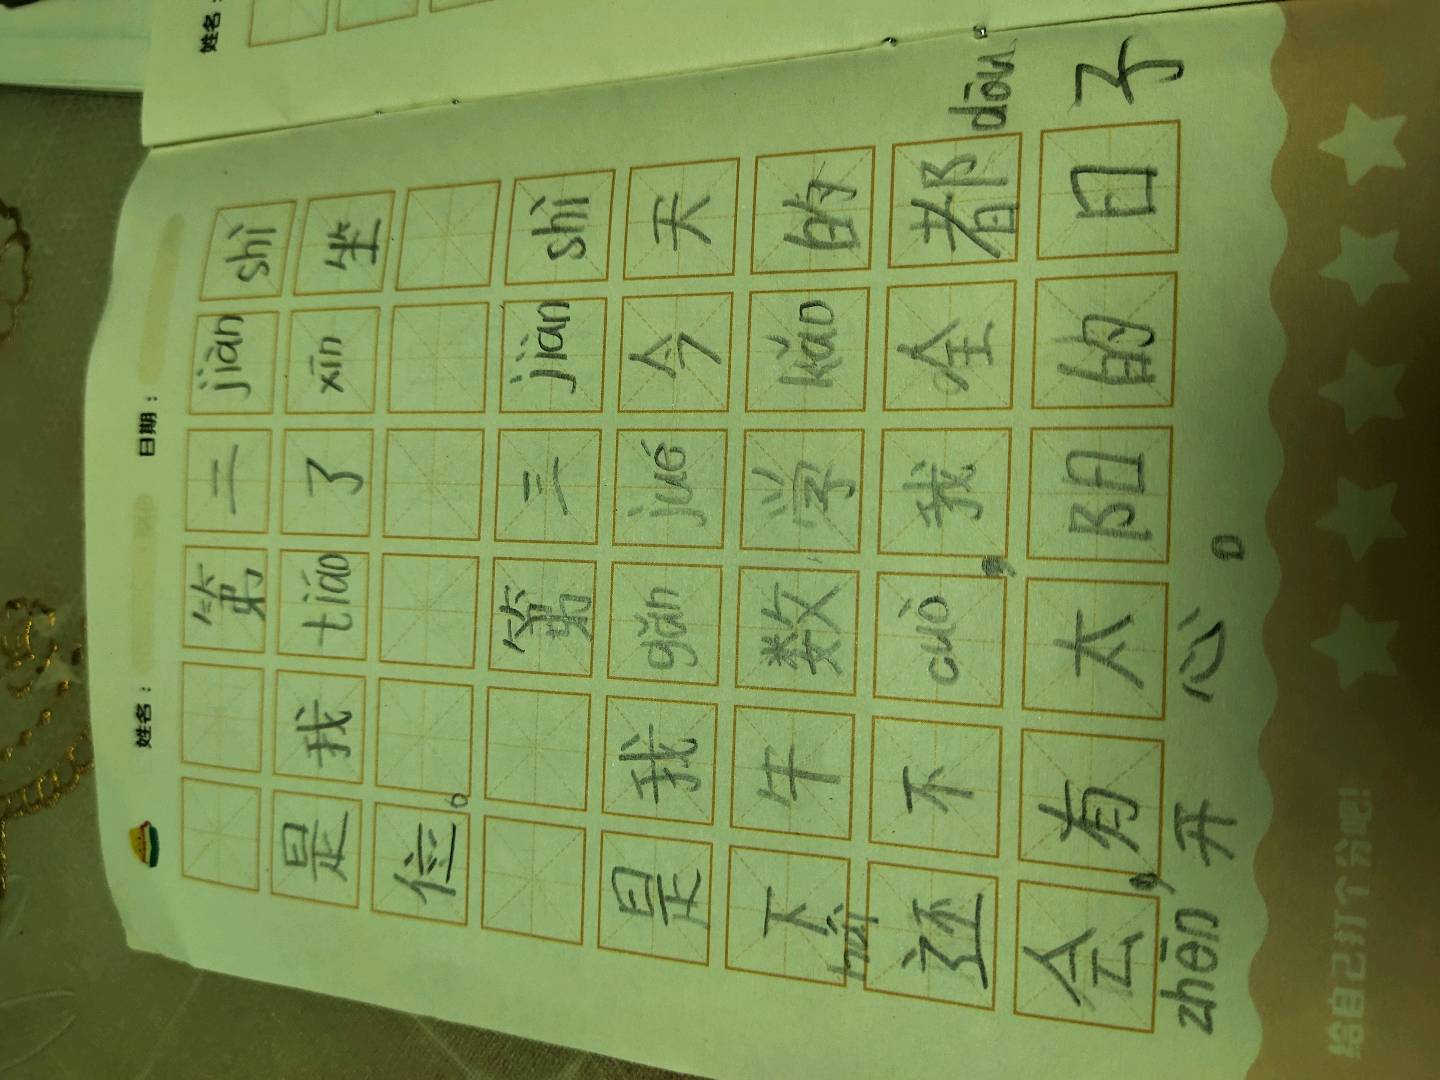 姓名：
姓名： 日期：
第二jiàn shì
是我tiáo了xīn坐
位。
第三jiàn shì
是我gǎn jué今天
下午数学kǎo的
hái dōu
还不cuò，我全都
会，有太阳的日子
zhēn开心。
给自己打个分吧！